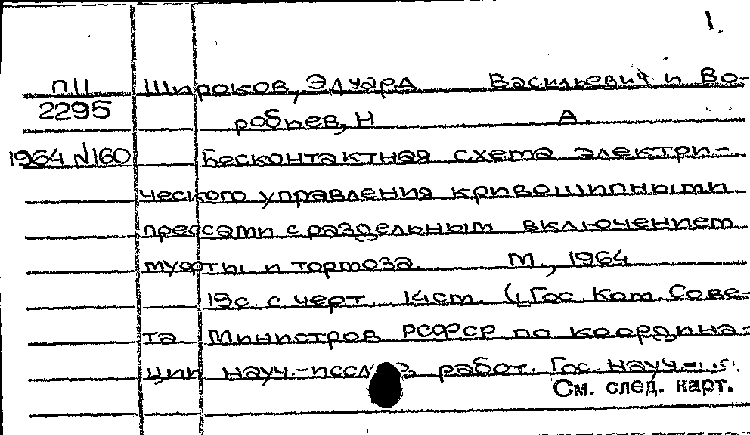 1.
П11 Широков, Эдуард Васильевич и Во-
2295 робьев, Н А.
1964 №160 Бесконтактная схема электри-
ческого управления кривошипными
прессами с раздельным включением
муфты и тормоза. М., 1964
19с. с черт. 14см. (Гос. Ком. Сове-
та Министров РСФСР по координа-
ции науч.-исслед. работ. Гос. науч.-
См. след. карт.